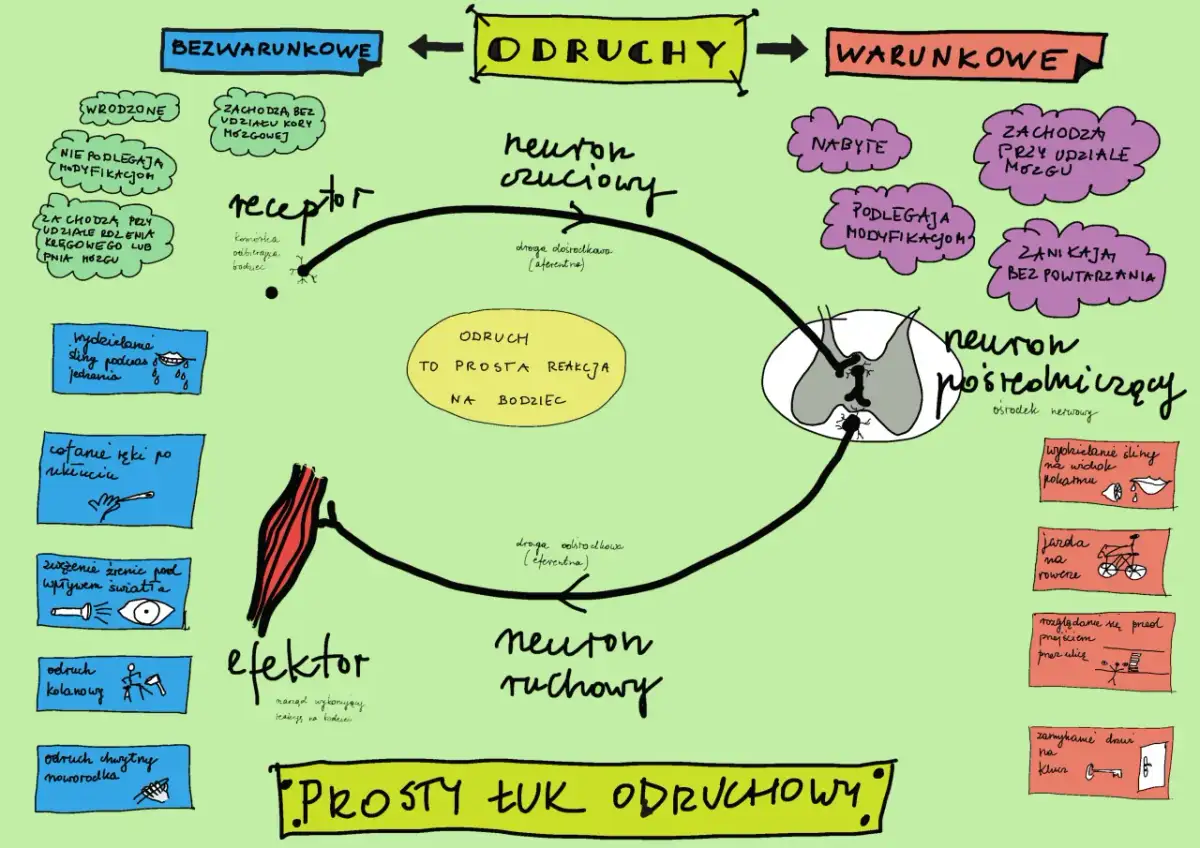 BEZWARUNKOWE
ODRUCHY
WARUNKOWE
WRODZONE
ZACHODZĄ BEZ
UDZIAŁU KORY
MÓZGOWEJ
NIE PODLEGAJĄ
MODYFIKACJOM
ZACHODZĄ PRZY
UDZIALE RDZENIA
KRĘGOWEGO LUB
PNIA MÓZGU
NABYTE
ZACHODZĄ
PRZY UDZIALE
MÓZGU
PODLEGAJĄ
MODYFIKACJOM
ZANIKAJĄ
BEZ POWTARZANIA
receptor
komórka
odbierająca
bodziec
neuron
czuciowy
droga dośrodkowa
(aferentna)
ODRUCH
TO PROSTA REAKCJA
NA BODZIEC
neuron
pośredniczący
ośrodek nerwowy
wydzielanie
śliny podczas
jedzenia
cofanie ręki po
ukłuciu
zwężenie źrenic pod
wpływem światła
odruch
kolanowy
odruch chwytny
noworodka
droga odśrodkowa
(eferentna)
neuron
ruchowy
efektor
narząd wykonujący
reakcję na bodziec
wydzielanie śliny
na widok
pokarmu
jazda
na
rowerze
rozglądanie się przed
przejściem
przez ulicę
zamykanie drzwi
na
klucz
PROSTY ŁUK ODRUCHOWY